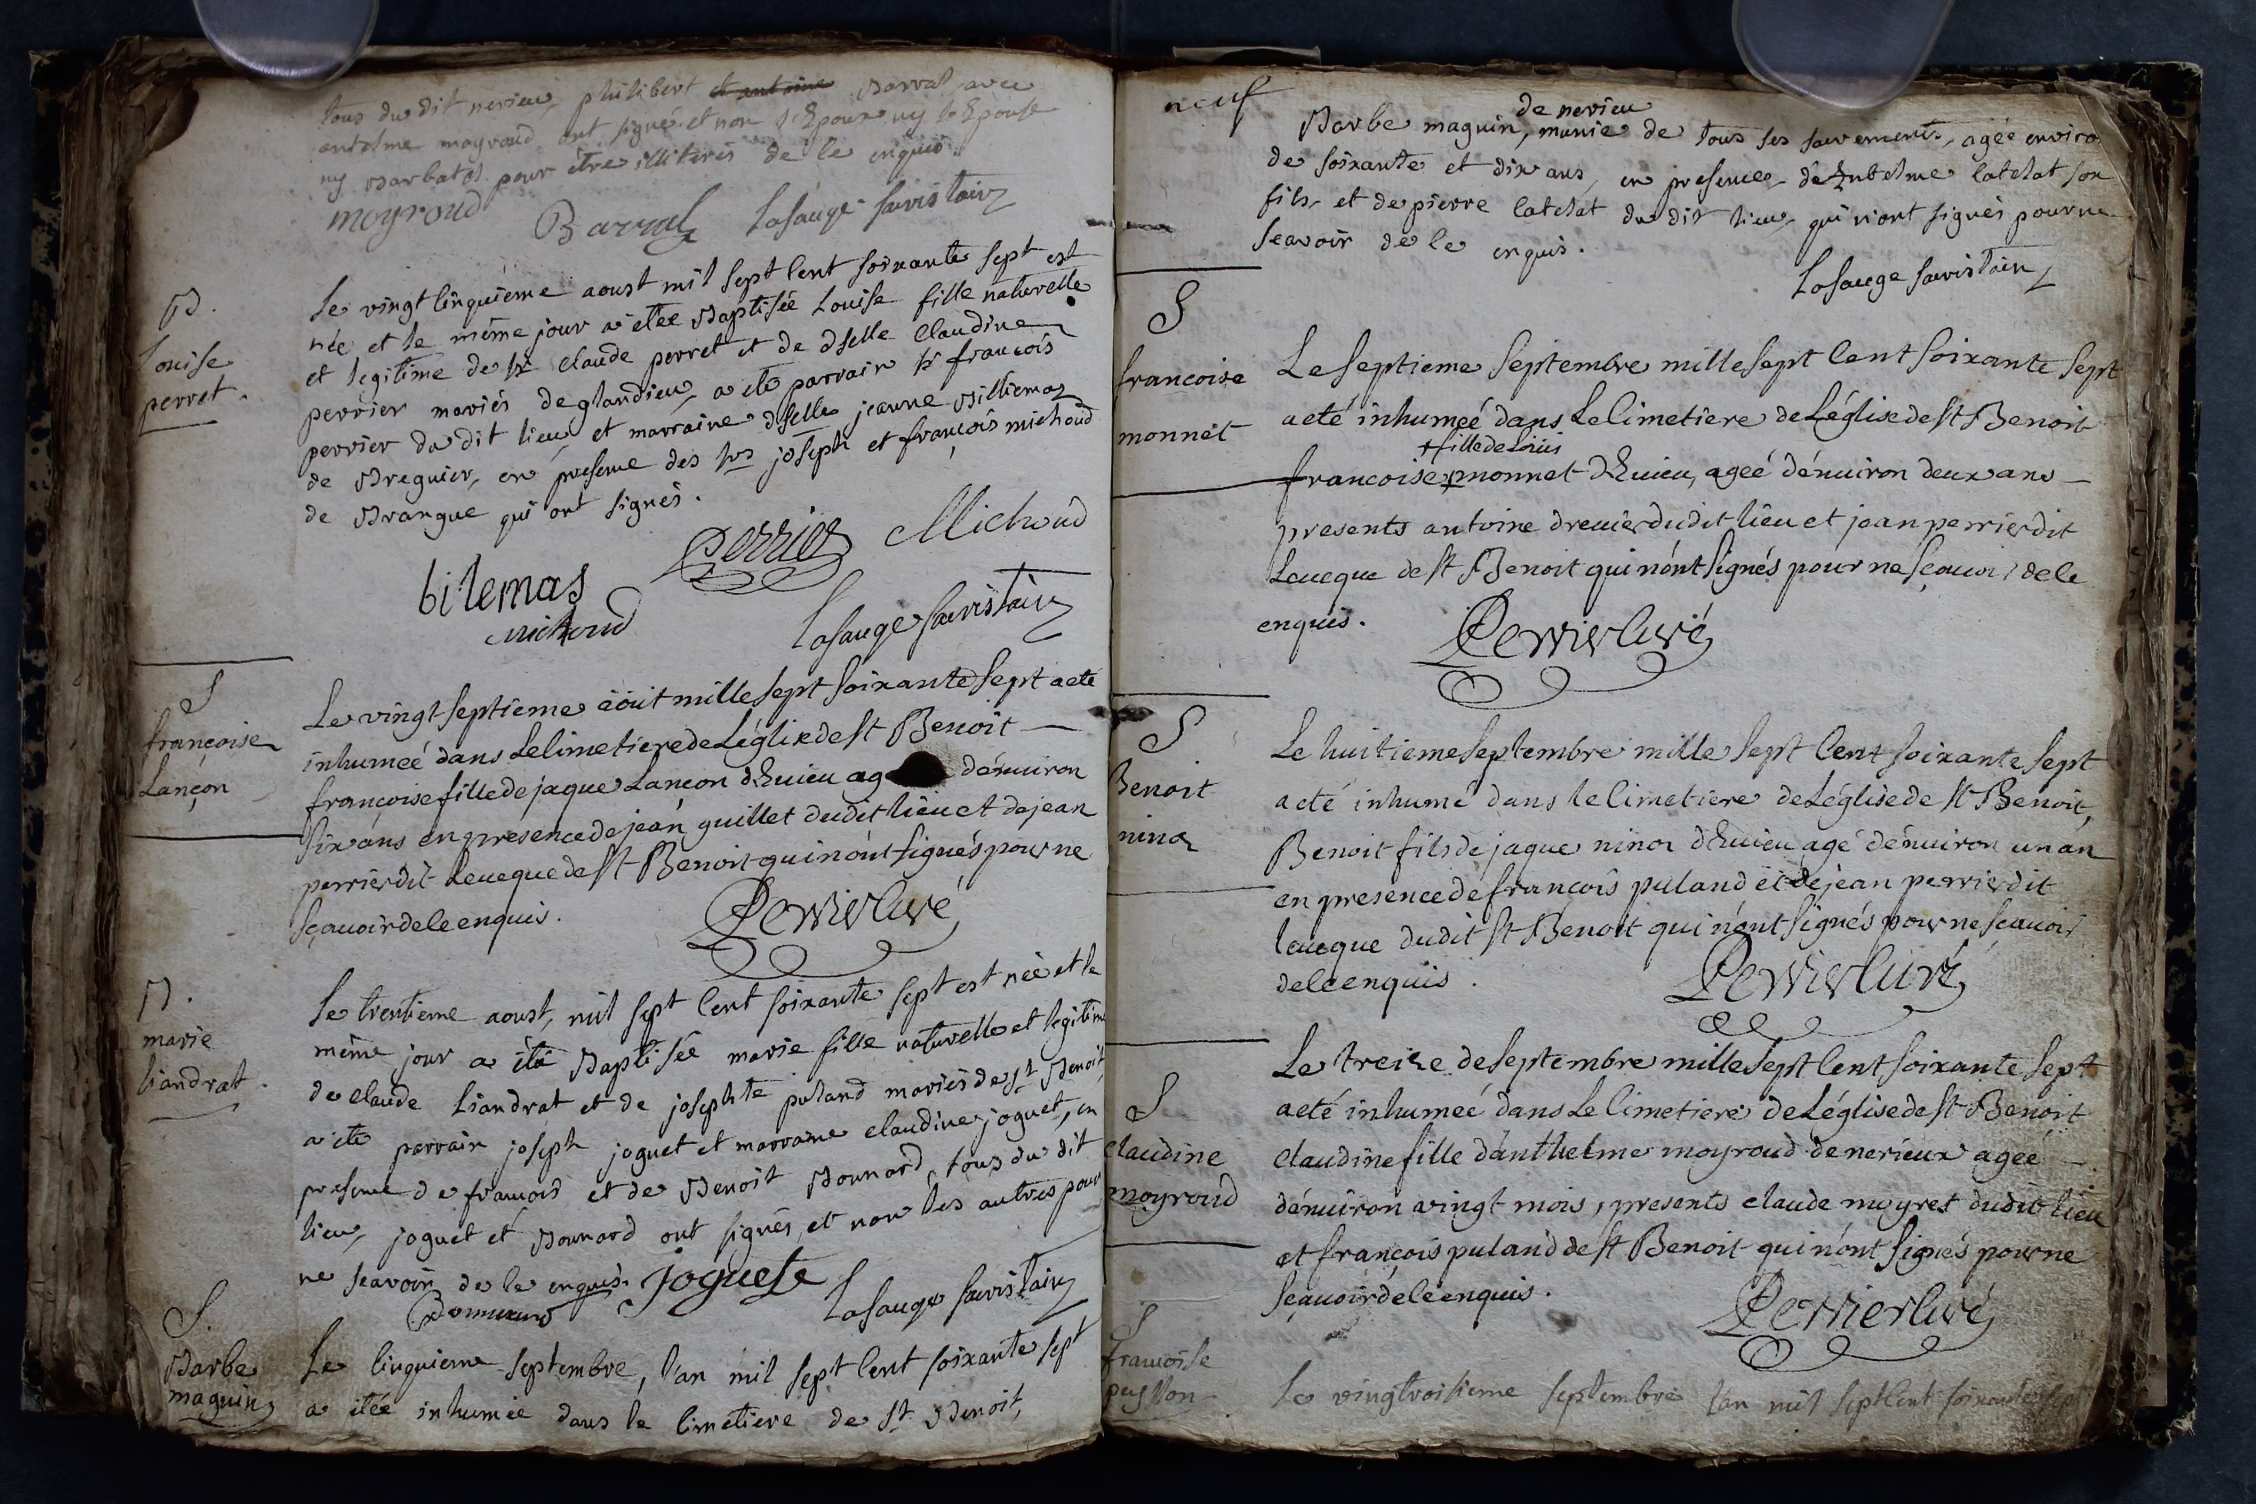 tous du dit nerieu, philibert et antoine Barral, avec
antelme moyroud ont signés et non l'Epoux ny l'Epouse
ny Barbatel pour être illiterés de le enquis.
moyroud Barral Lasauge sacristain
B.
Louise
perret.
Le vingt cinquième aoust mil sept cent soixante sept est
née et le même jour a etée Baptisée Louise fille naturelle
et legitime de Sr claude perret et de dselle claudine
perrier mariés de glandieu, a ete parrain Sr francois
perrier du dit lieu et marraine dselle jeanne Billiemaz
de Breguier, en presence des Srs joseph et françois michoud
de Brangue qui ont signés.
bilemas perrier Michoud
michoud Lasauge sacristain
S
francoise
Lançon
Le vingt septieme aôut mille sept soixante sept a eté
inhumeé dans Le cimetiere de L'église de St Benoit
françoise fille de jaque Lançon d'huieu ag dénuiron
six ans en presence de jean guillet dudit lieu et de jean
perrier dit Leueque de St Benoit qui n'ónt signés pour ne
sçauoir de le enquis. Perrier Curé
B.
marie
Liandrat.
Le trentieme aoust, mil sept cent soixante sept est née et le
même jour a été Baptisée marie fille naturelle et legitime
de claude Liandrat et de josephte puland mariés de St Benoit,
a ete parrain joseph joguet et marraine claudine joguet, en
presence de francois et de Benoit Bonnard, tous du dit
lieu, joguet et Bonnard ont signés, et non les autres pour
ne scavoir de le enquis. joguete
Bonnard Lasauge sacristain
S.
Barbe
maguin
Le cinquieme septembre, l'an mil sept cent soixante sept
a etée inhumée dans le cimetiere de St Benoit,
neuf
de nerieu
Barbe maguin, munie de tous ses sacrements, agée enviro
de soixante et dix ans, en presence d'Antelme latelat son
fils, et de pierre latelat du dit lieu, qui n'ont signés pour ne
scavoir de le enquis.
Lasauge sacristain
S
francoise
monnet
Le septieme septembre mille sept cent soixante sept
a eté inhumeé dans Le cimetiere de L'église de St Benoit
+ fille de Loüis
francoise + monnet d'huieu, ageé dénuiron deux ans
presents antoine dreuier dudit lieu et jean perrier dit
Leueque de St Benoit qui n'ónt signés pour ne sçauoir de le
enquis. Perrier Curé
S
Benoit
ninoz
Le huitieme septembre mille sept cent soixante sept
a eté inhumé dans le cimetiere de L'église de St Benoit,
Benoit fils de jaque ninoz d'huieu agé dénuiron un an
en presence de françois puland et de jean perrier dit
leueque dudit St Benoit qui n'ónt signés pour ne sçauoir
de le enquis. Perrier Curé
S
claudine
moyroud
Le treize de septembre mille sept cent soixante sept
a eté inhumeé dans Le cimetiere de L'église de St Benoit
claudine fille d'anthelme moyroud de nerieux agée
dénuiron vingt mois, presents claude moyret dudit lieu
et françois puland de St Benoit qui n'ónt signés pour ne
sçauoir de le enquis. Perrier Curé
S
francoise
Le vingtroisieme septembre l'an mil sept cent soixante sept